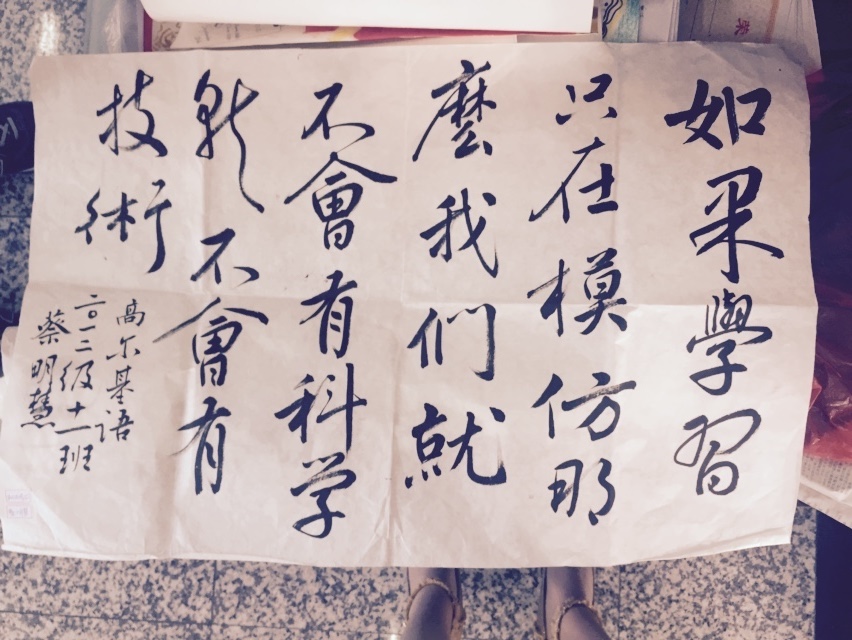 如果學習
只在模仿那
麼我們就
不會有科学
就不會有
技術
高尔基语
二〇一二级十一班
蔡明慧